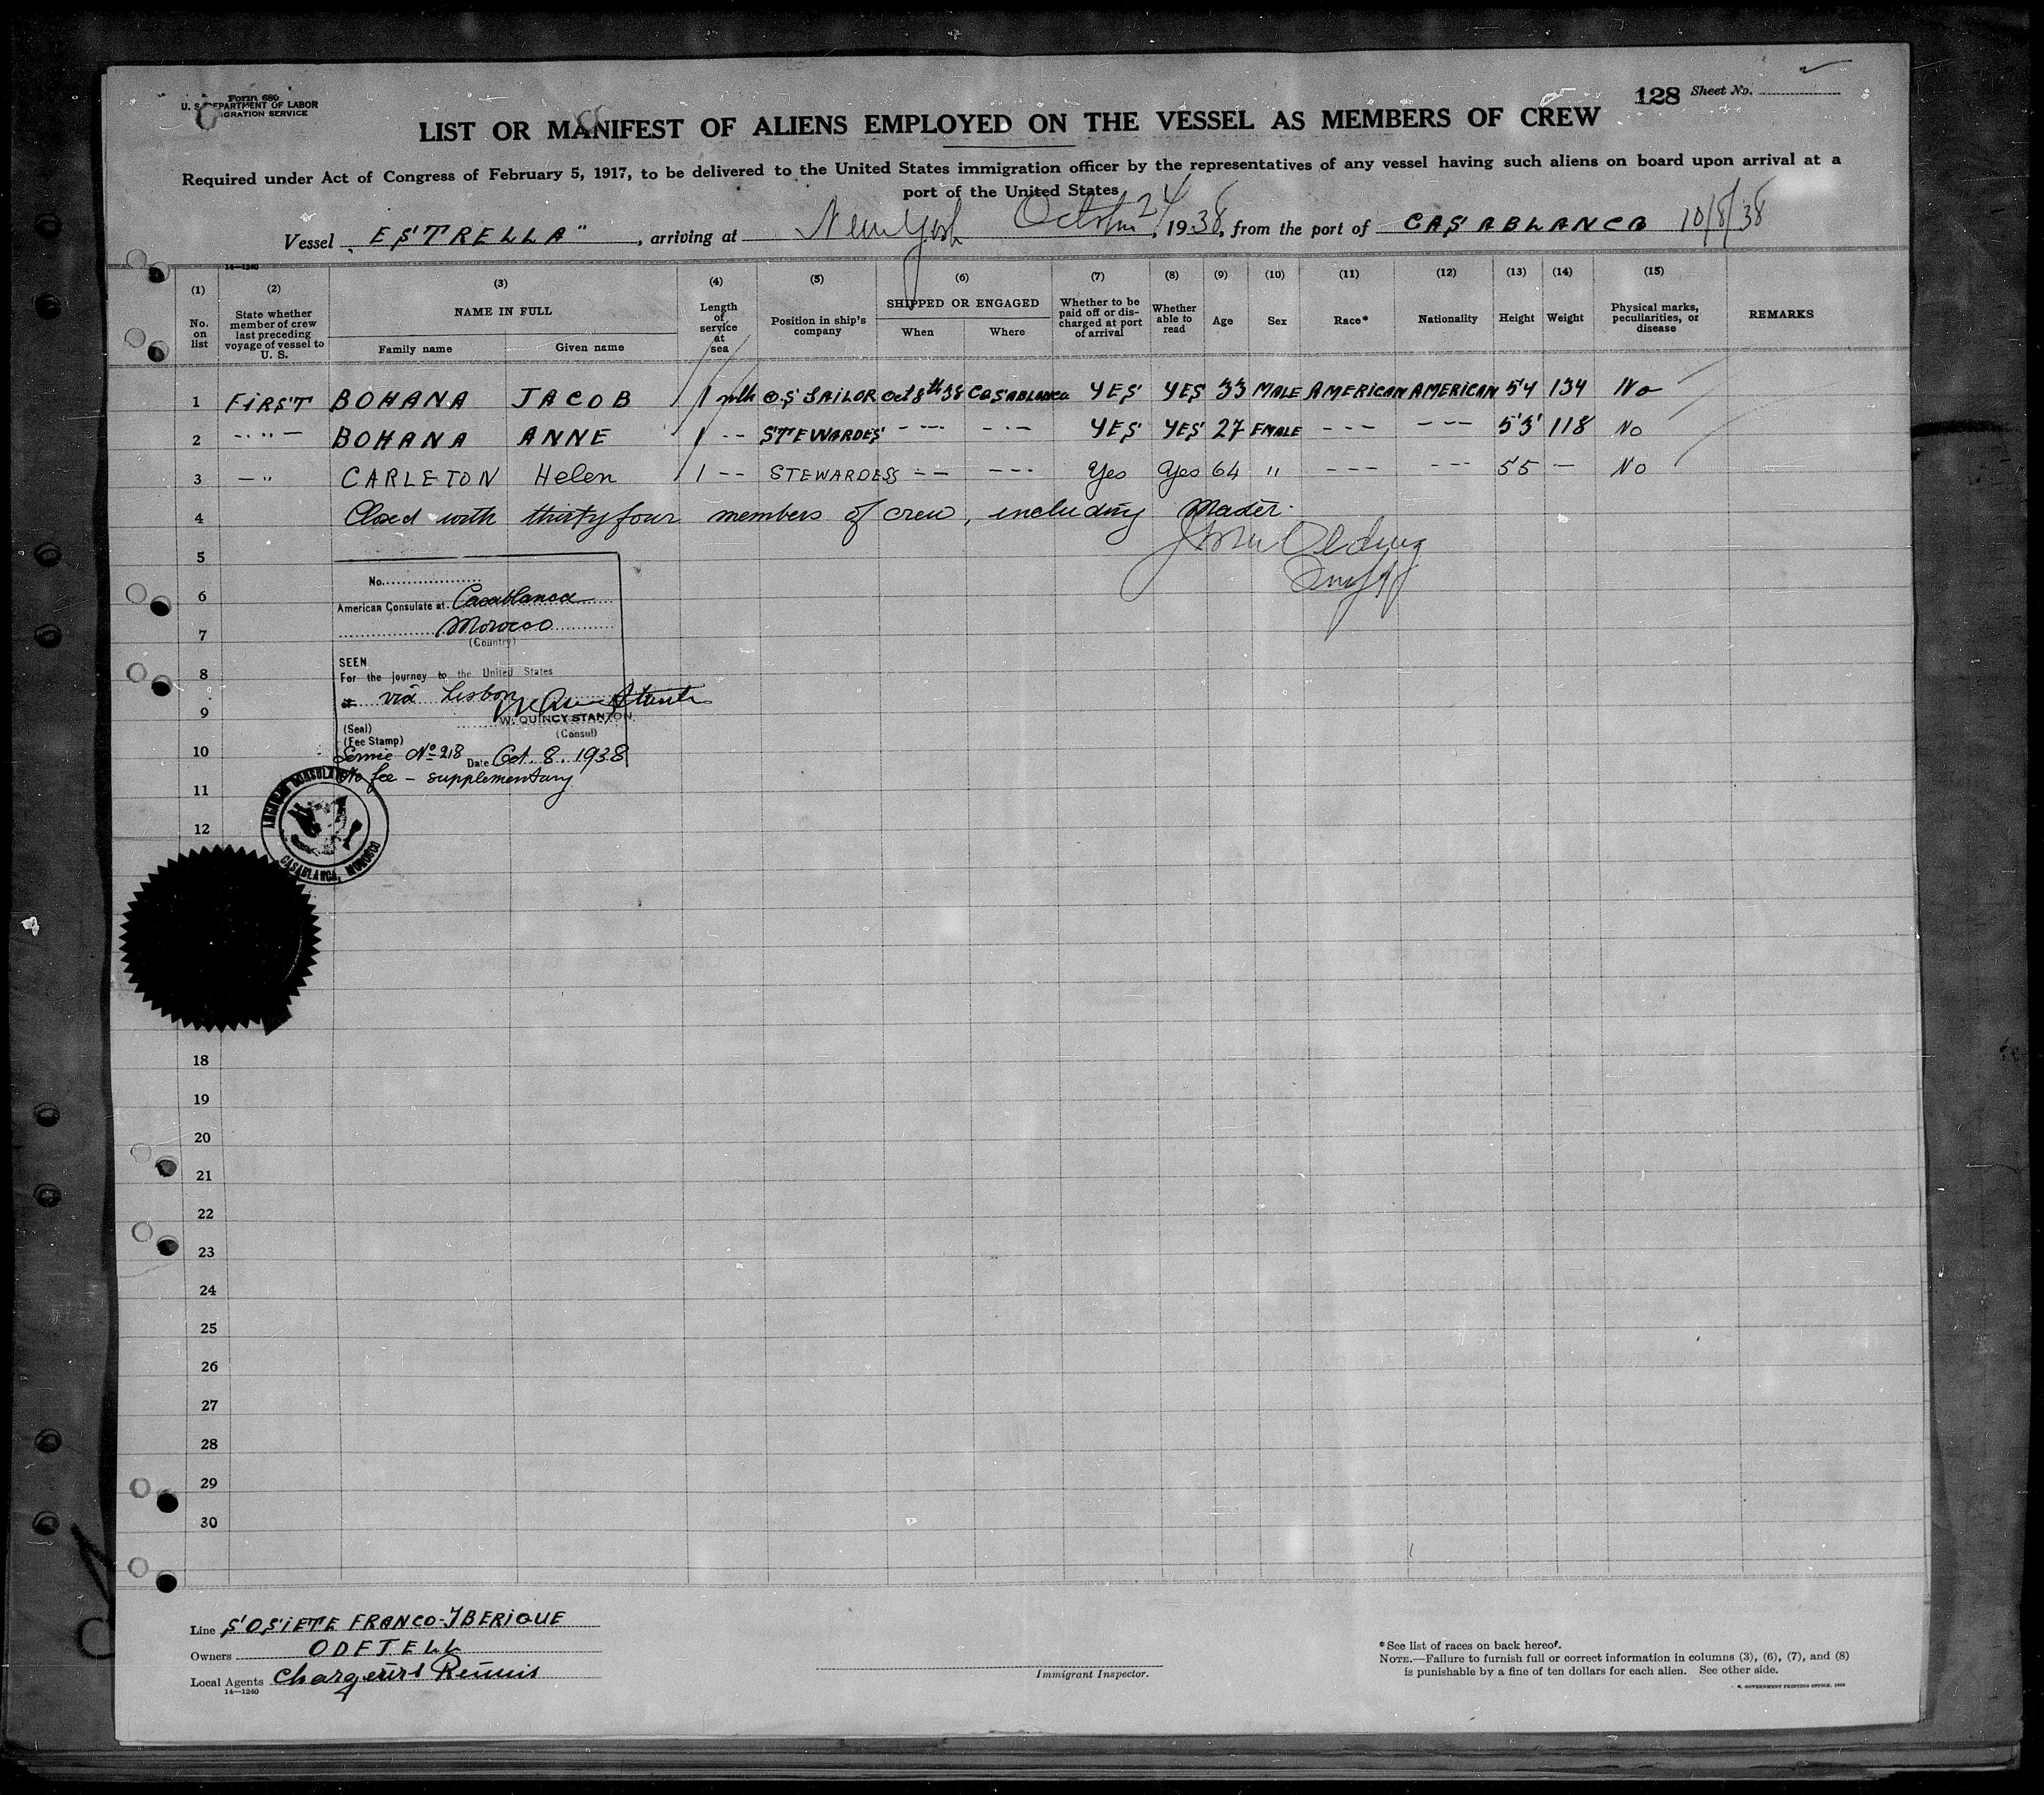 Form 680
U. S. DEPARTMENT OF LABOR
GRATION SERVICE
128 Sheet No.
LIST OR MANIFEST OF ALIENS EMPLOYED ON THE VESSEL AS MEMBERS OF CREW
Required under Act of Congress of February 5, 1917, to be delivered to the United States immigration officer by the representatives of any vessel having such aliens on board upon arrival at a
port of the United States
Vessel "ESTRELLA", arriving at New York October 24, 1938, from the port of CASABLANCA 10/8/38
14—1240
(1) (2) (3) (4) (5) (6) (7) (8) (9) (10) (11) (12) (13) (14) (15)
No. on list
State whether member of crew last preceding voyage of vessel to U. S.
NAME IN FULL
Family name Given name
Length of service at sea
Position in ship's company
SHIPPED OR ENGAGED
When Where
Whether to be paid off or discharged at port of arrival
Whether able to read
Age Sex Race* Nationality Height Weight
Physical marks, peculiarities, or disease
REMARKS
1 FIRST BOHANA JACOB 1 mth O.S SAILOR Oct 8th 38 CASABLANCA YES YES 33 MALE AMERICAN AMERICAN 54 134 No
2 - " - BOHANA ANNE 1 -- STEWARDES --- --- YES YES 27 FMALE --- --- 53 118 No
3 - " CARLETON Helen 1 -- STEWARDESS --- --- Yes Yes 64 " --- --- 55 — No
4 Closed with thirty four members of crew, including Master.
5
6
7
8
9
10
11
12
No.
American Consulate at Casablanca
Morocco
(Country)
SEEN
For the journey to the United States
via Lisbon
W. QUINCY STANTON
(Seal) (Consul)
(Fee Stamp)
Service No 218 Date Oct. 8. 1938
No fee - supplementary
AMERICAN CONSULATE
CASABLANCA, MOROCCO
18
19
20
21
22
23
24
25
26
27
28
29
30
Line SOSIETE FRANCO-IBERIQUE
Owners ODETELL
Local Agents Chargeurs Reunis
14—1240
Immigrant Inspector.
*See list of races on back hereof.
NOTE.—Failure to furnish full or correct information in columns (3), (6), (7), and (8)
is punishable by a fine of ten dollars for each alien. See other side.
GOVERNMENT PRINTING OFFICE